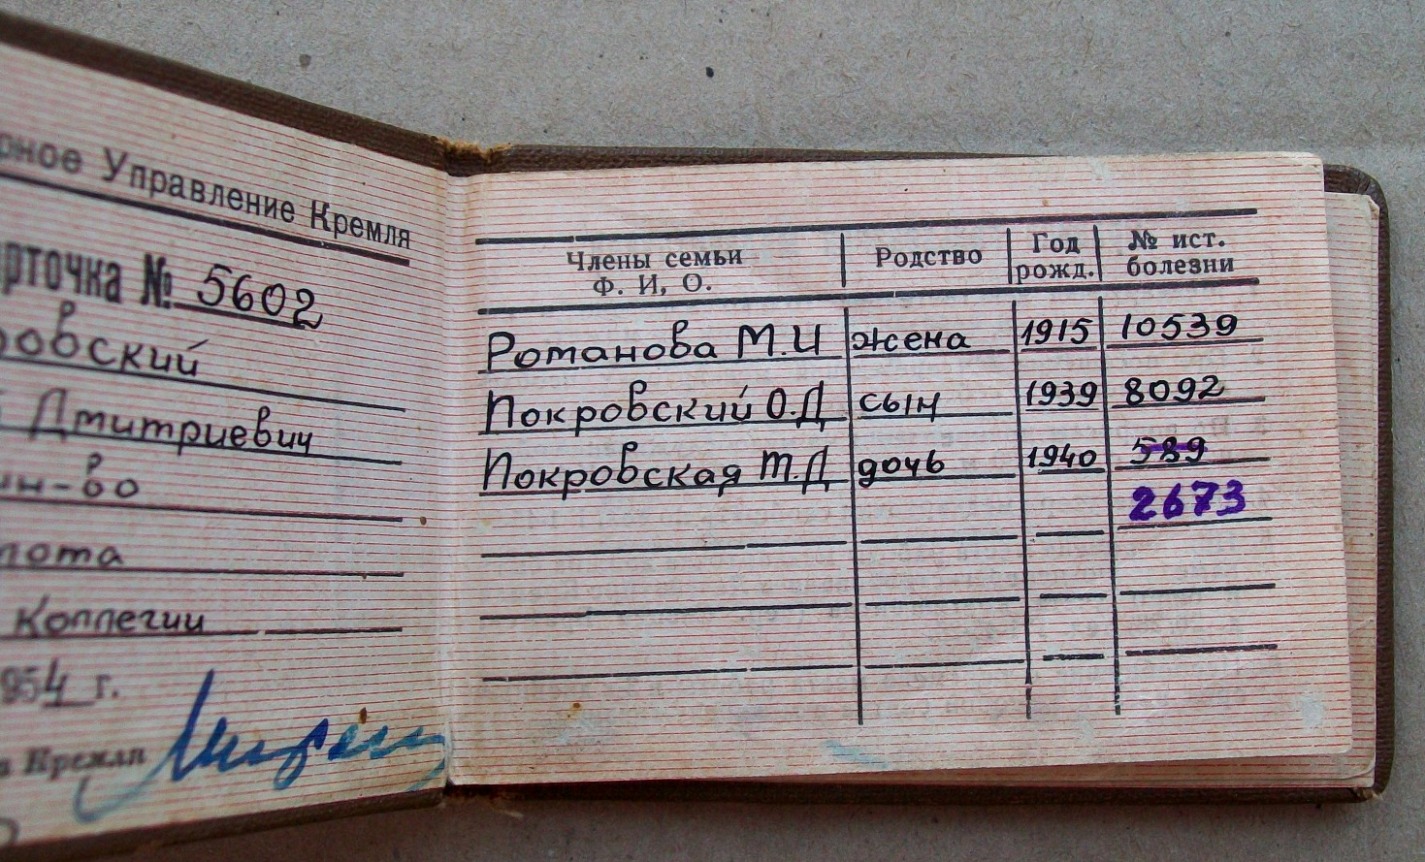 рное Управление Кремля
рточка № 5602
ровский
Дмитриевич
ин-во
лота
Коллегии
954 г.
а Кремля
Члены семьи Ф. И, О. Родство Год рожд. № ист. болезни
Романова М.И жена 1915 10539
Покровский О.Д сын 1939 8092
Покровская Т.Д дочь 1940 589
2673